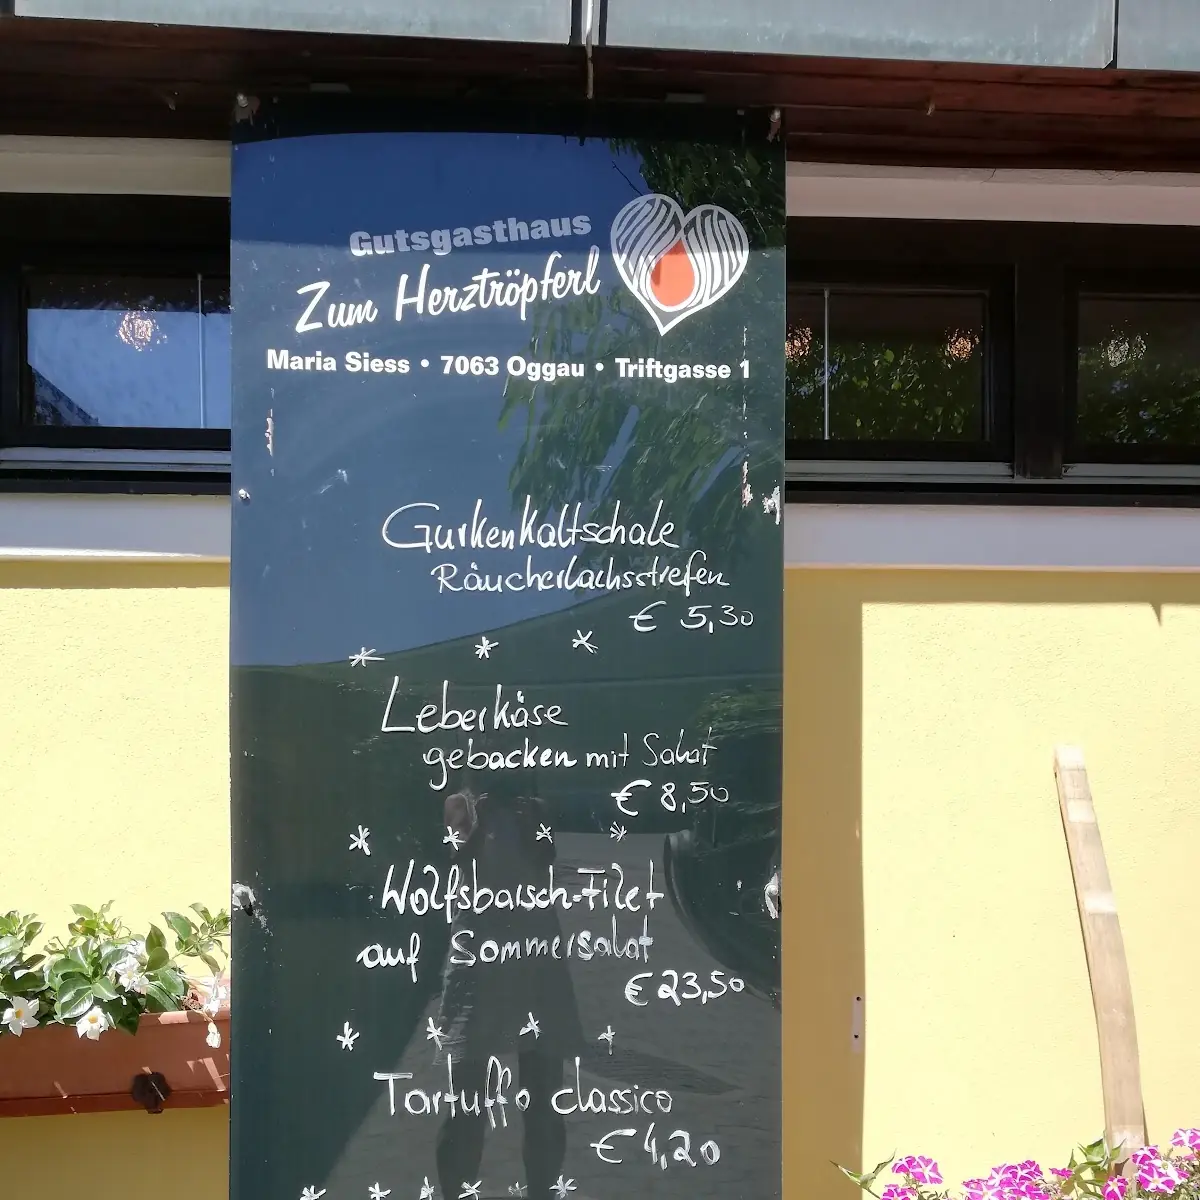 Gutsgasthaus
Zum Herztröpferl
Maria Siess • 7063 Oggau • Triftgasse 1
Gurkenkaltschale
Räucherlachsstreifen
€ 5,30
* * *
Leberkäse
gebacken mit Salat
€ 8,50
* * * *
Wolfsbarsch-Filet
auf Sommersalat
€ 23,50
* * * *
Tartuffo classico
€ 4,20
* * * * * *